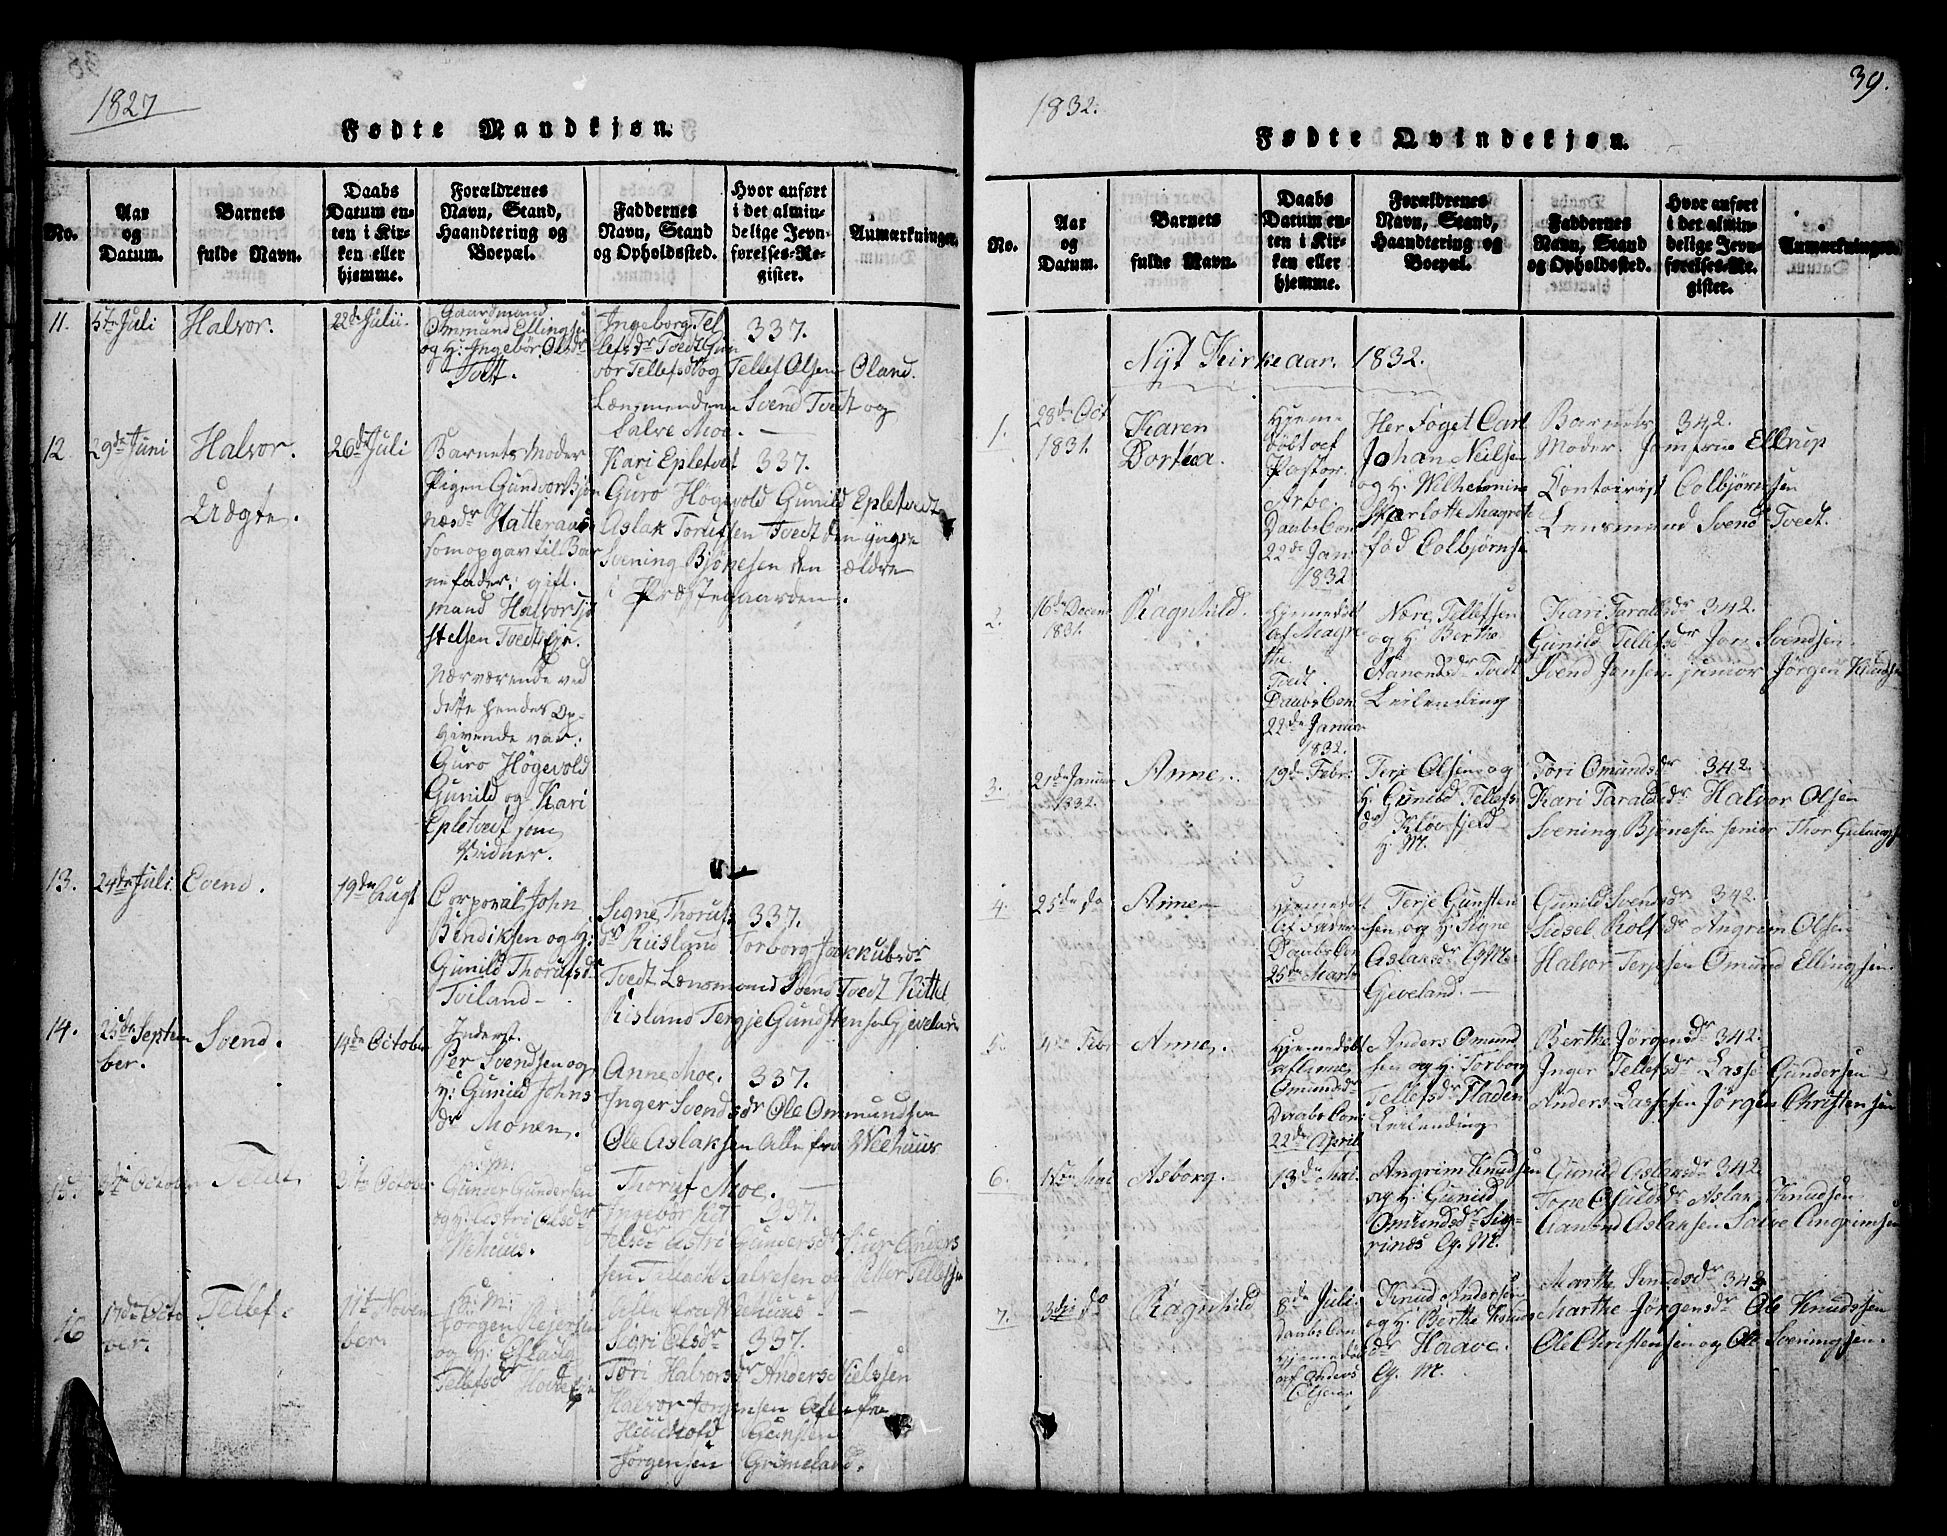 1827
Fødte Mandkjøn.
No.
Aar
og
Datum.
Barnets
fulde Navn.
Daabs
Datum en-
ten i Kir-
ken eller
hjemme.
Forældrenes
Navn, Stand,
Haandtering og
Boepæl.
Faddernes
Navn, Stand
og Opholdssted.
Hvor anført
i det almin-
delige Jevn-
førelses-Re-
gister.
Anmærkninger.
11.
5te Juli
Halvor.
22de Julii.
Gaardmand
Ommund Ellingsen
og H: Ingebør Olsdr
Tvett.
Ingeborg Tel
lefsdr Tvedt Gun
vor Tellefsdr og Tellef Olsen Øland.
Lænsmendene Svend Tvedt og
Salve Moe. —
337.
12
29de Juni
Halvor.
Uægte.
26de Juli
Barnets Moder
Pigen Gundvor Bjør
næsdr Hatteraas
som opgav til Bar
nefader: gift.
mand Halvor Tjø
stelsen Tvedt Eje.
Nærværende ved
dette hendes Op-
givende var:
Guro Högevold
Gunild og Kari
Epletvedt som
Vidner.
Kari Epletvedt 337.
Guro Högevold Gunild Epletvedt
Aslak Torufsen Tvedt den yngre
Svening Bjönesen den ældre
i Præstegaarden.
13.
24de Juli
Evend.
19de Augt
Corporal John
Bendiksen og H:
Gunild Thorufsdr
Tviland —
Signe Thorufs 337.
dr Risland Torborg Jakkubsdr
Tvedt Lænsmand Svend Tvedt Kittel
Risland Tergje Gundstensen Gjeveland
14.
25de Septem
ber.
Svend.
14de October
Inderst.
Per Svendsen og
H: Gunild Johns
dr Monen.
Anne Moe. 337.
Inger Svendsdr Ole Ommundsen
Ole Aslaksen Alle fra Weehuus
Thoruf Moe. —
15.
October
October
Gunder Gundersen
og H: Astri Olsdr
Wehuus.
Ingebor Kit 337.
telsdr Astri Gundersdr Siur Anders
sen Tellef Salvesen og Petter Tellefsen
Alle fra Wehuus. —
16
17de Octo
ber.
Tellef.
11te Novem
ber.
Jørgen
og H: Aslaug
Tellefsdr
Sigri Olsdr 337.
Töri Halvorsdr Anders Nielssen
Halvor Jørgensen Alle fra
Gunsten
Jørgensen Grimeland.
1832.
39.
Fødte Qvindekjøn.
No.
Aar
og
Datum.
Barnets
fulde Navn.
Daabs
Datum en-
ten i Kir-
ken eller
hjemme.
Forældrenes
Navn, Stand,
Haandtering og
Boepæl.
Faddernes
Navn, Stand
og Opholdssted.
Hvor anført
i det almin-
delige Jevn-
førelses-Re-
gister.
Anmærkninger.
Nyt Kirkeaar. 1832.
1.
28de Oct
1831.
Karen
Dortea.
Hjeme
döbt af
Pastor
Arbo
Daabs Con
22de Jan.
1832
Her Foget Carl
Johan Neilsen
og H: Wilhelmine
Skarlotte Magrete
föd Colbjørnsen
Barnets 342.
Moder. Jomfrue Ellrup
Contoirist Colbjørnsen
Lensmand Svend Tvedt.
2.
16de Decem
1831.
Ragnhild.
Hjemedöbt
af Magre
the
Tvedt
Daabs Con.
22de Januar
1832.
Nære Tellefsen
og H: Berthe
Aanonsdr Tvedt
Leilending
Kari Taraldsdr 342.
Gunild Tellefsdr Jon Svendsen
Svend Jonsen junior Jörgen Knudsen
3.
21de Januar
1832.
Anne.
19de Febr.
Terje Olsen og
H: Gunild Tellefs
dr Kløvfjeld
H. M.
Töri Omundsdr 342.
Kari Taraldsdr Halvor Olsen
Svening Bjönesen senior Thor Gutungsen
4.
25de do
Anne
Hjemmedöbt
af Faderen
Daabs Con
25de Marts
Terje Gunsten
sen og H: Signe
Aslaksdr G. M.
Gjeveland. —
Gunild Svensdr 342.
Sissel Rolfsdr Angrim Olsen
Halvor Terjesen Omund Ellingsen
5.
4de Febr
Anne.
Hjemedöbt
af Anne
Omundsdr
Daabs Con
22de April
Anders Omund
sen og H: Torborg
Tellefsdr Fladen
Leilending
Berthe Jörgensdr 342.
Inger Tellefsdr Lasse Gundersen
Anders Lassesen Jörgen Christensen
6.
Mai
Asborg.
13de Mai
Angrim Knudsen
og H: Gunild
Omundsdr Sig-
rines G. M.
Gunild Aslaksdr 342.
Tone Osuldsdr Aslak Knudsen
Aanond Aslaksen Salve Angrimsen
7.
3die do
Ragnhild
8de Juli.
Daabs Con
Hjemedöbt
af Anders
Olsen
Knud Andersen
og H: Berthe Knuds
dr Haave.
G. M.
Marthe Knudsdr 342
Marthe Jörgensdr Ole Knudsen
Ole Christensen og Ole Sveningsen.